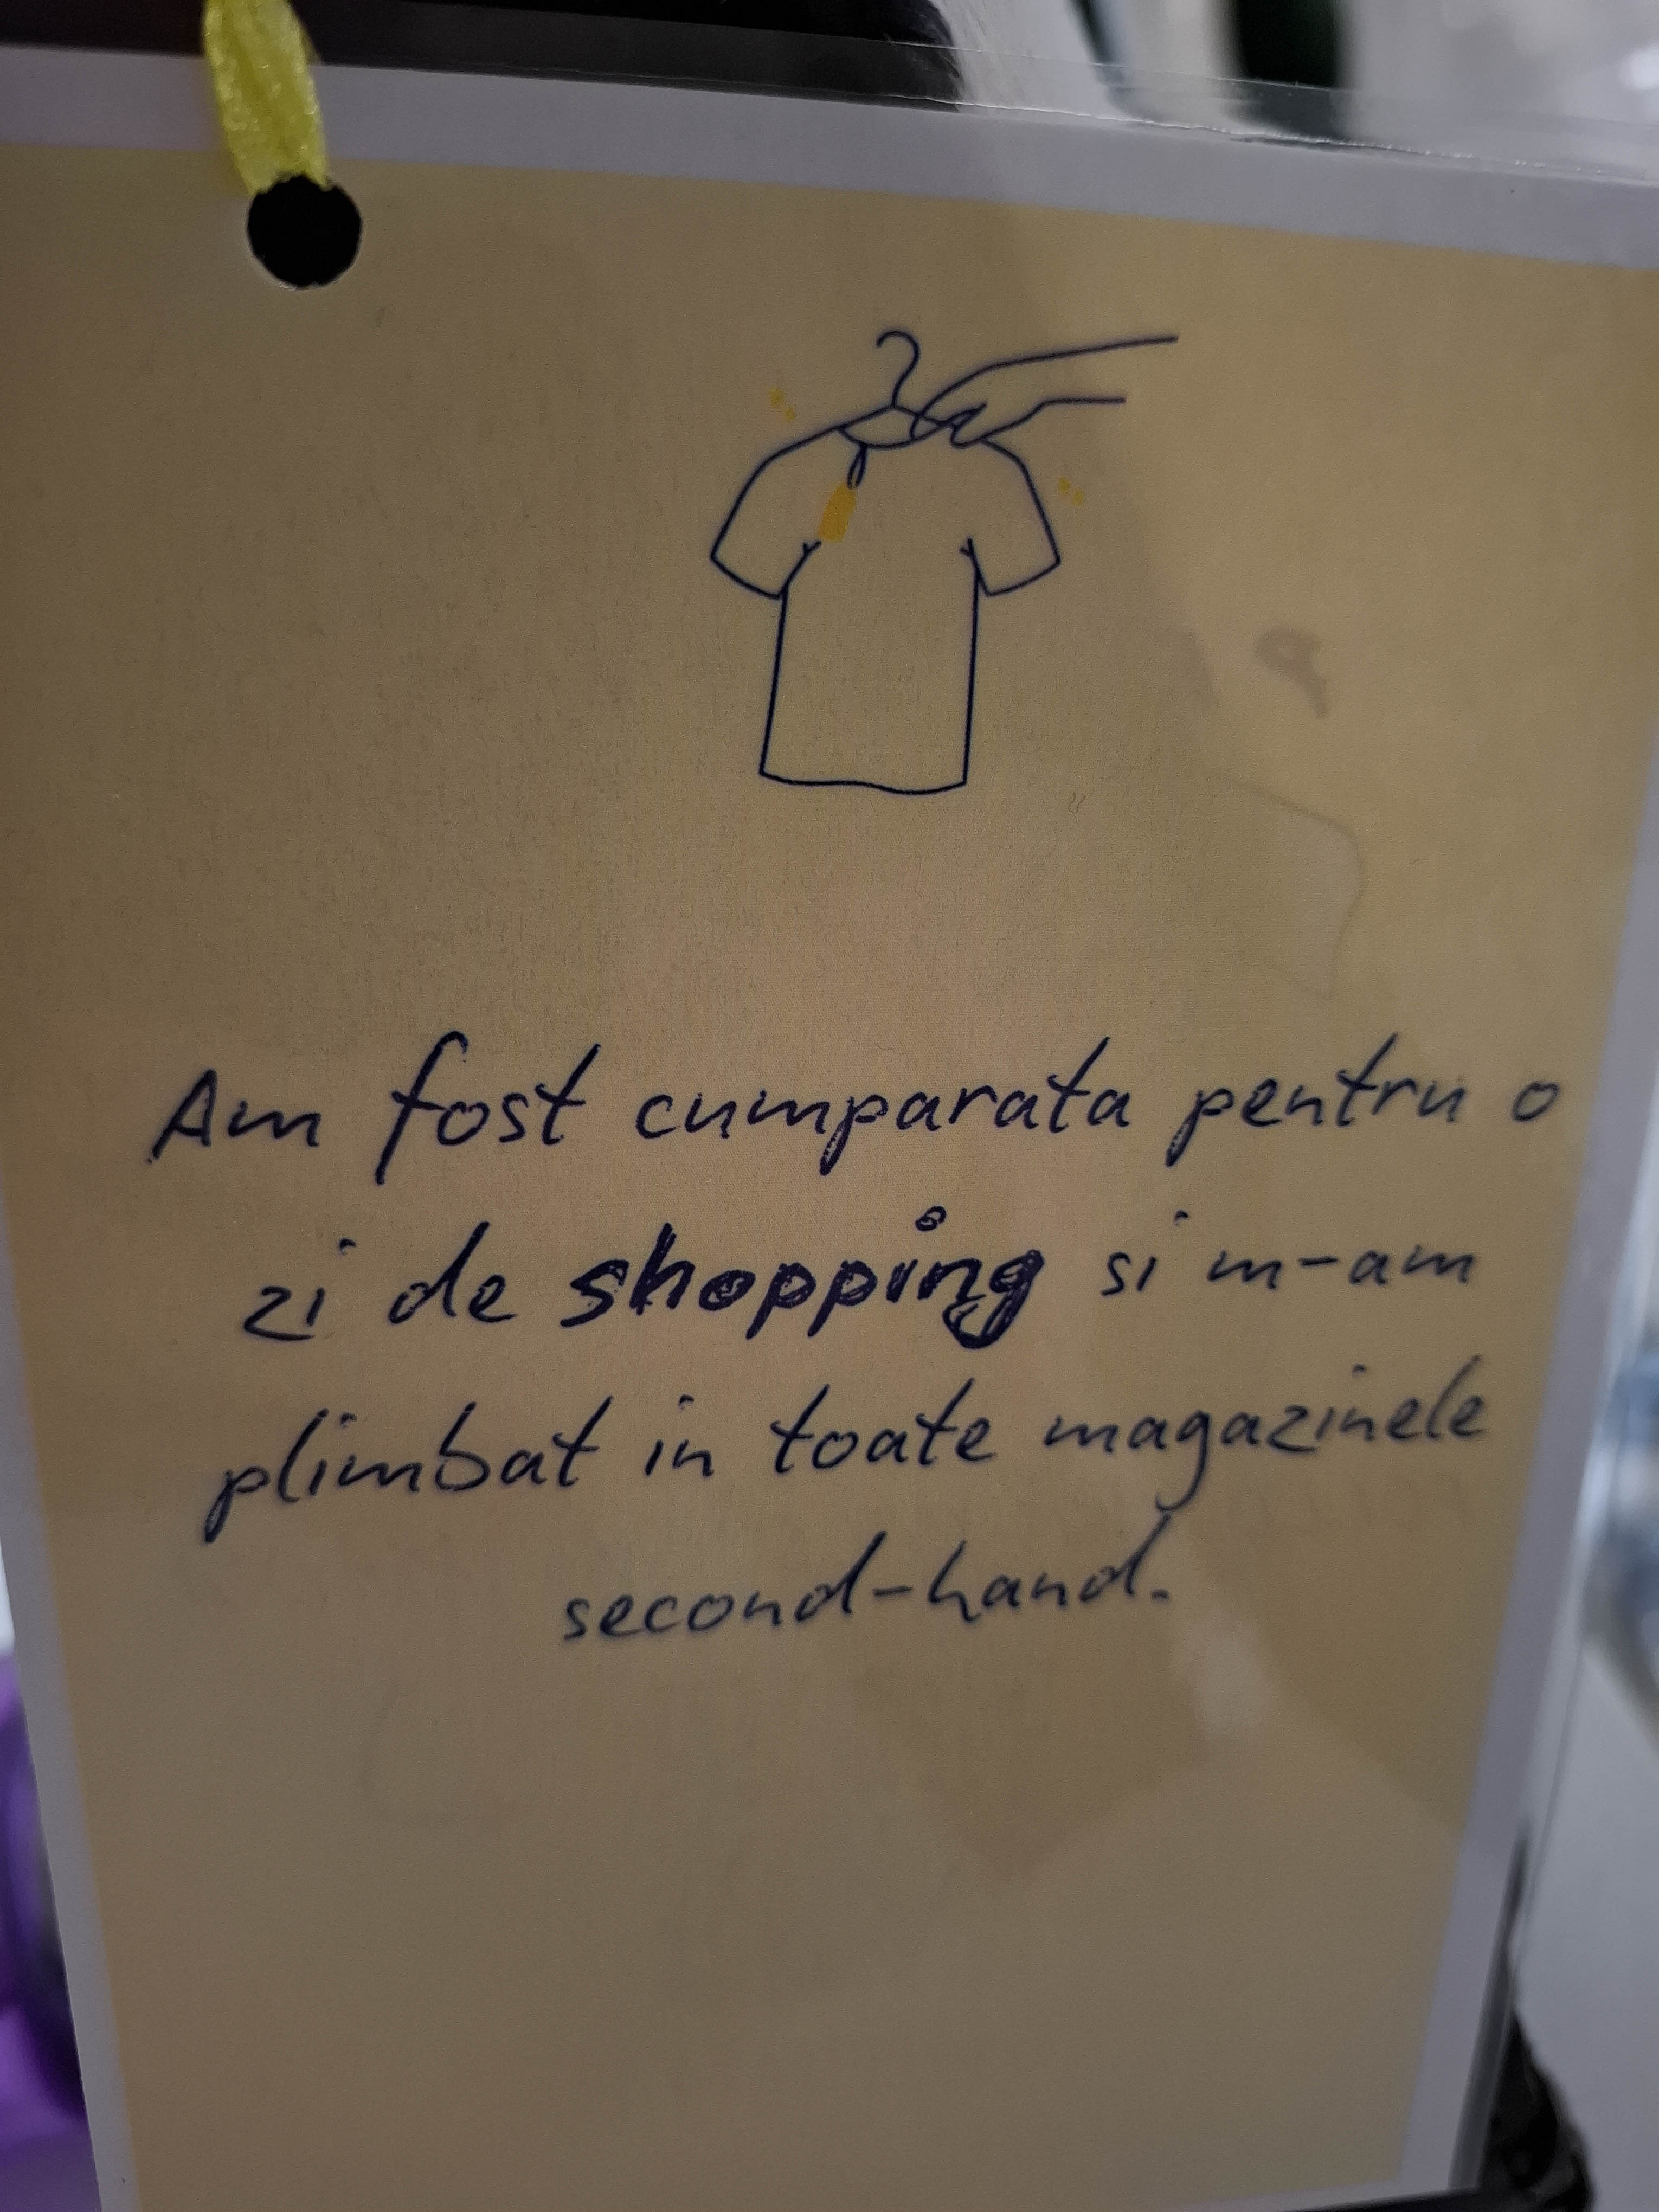 Am fost cumparata pentru o
zi de shopping si m-am
plimbat in toate magazinele
second-hand.